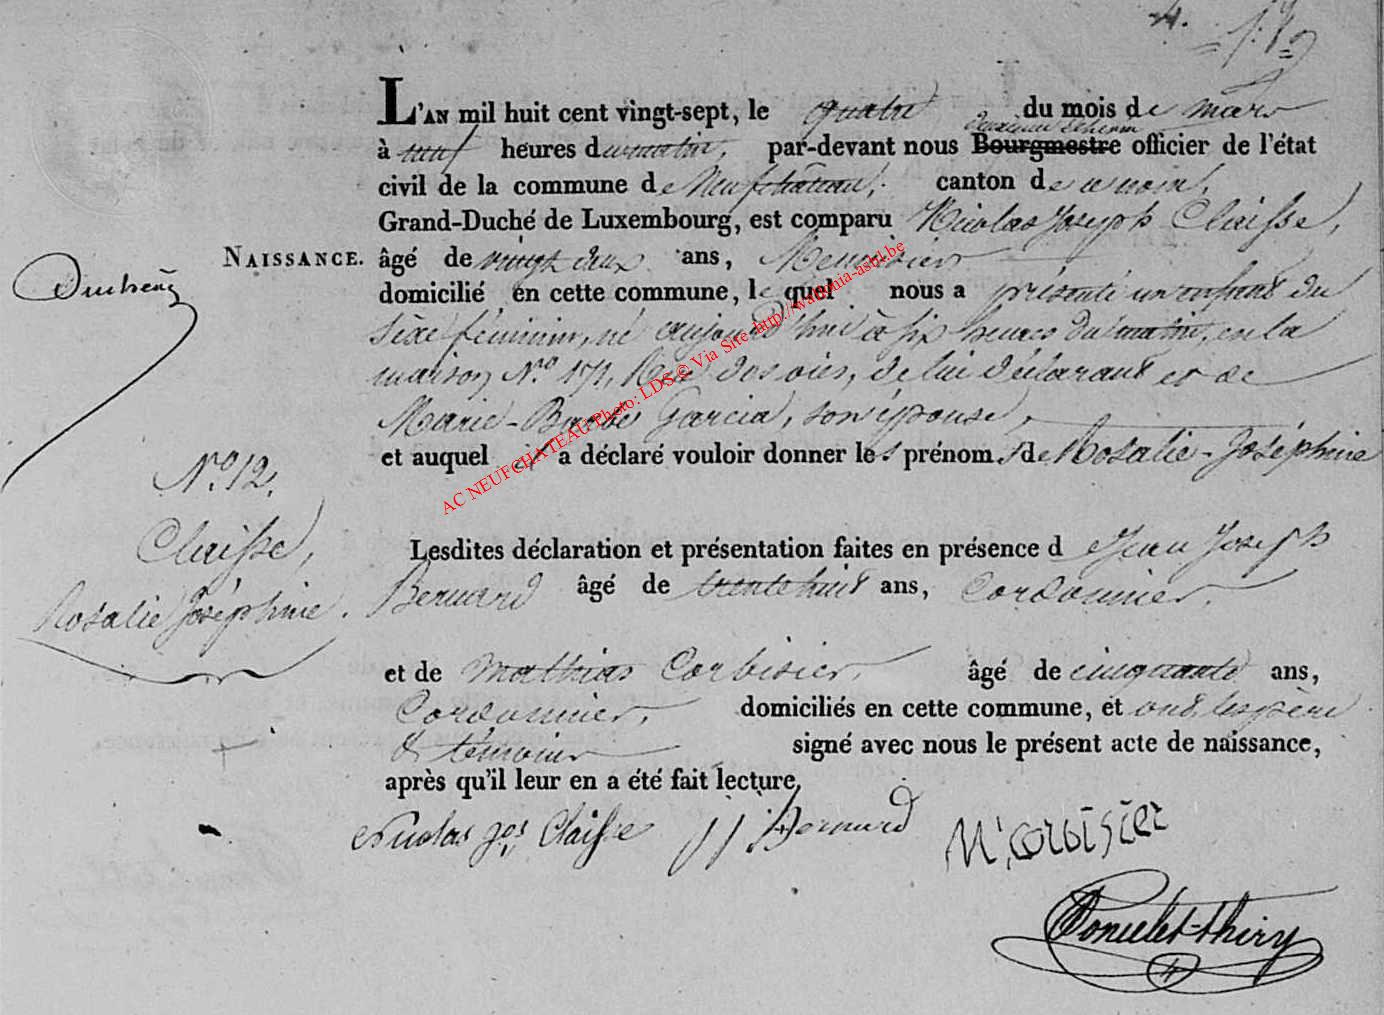 4.
L'AN mil huit cent vingt-sept, le quatre du mois de mars
à neuf heures du matin, par-devant nous deuxième échevin Bourgmestre officier de l'état
civil de la commune de Neufchâteau, canton de ce nom,
Grand-Duché de Luxembourg, est comparu Nicolas Joseph Claisse,
NAISSANCE. âgé de vingt deux ans, Menuisier
domicilié en cette commune, le quel nous a présenté un enfant du
sexe féminin, né aujourd'hui à six heures du matin, en la
maison N.º 171, Rue des oies, de lui déclarant et de
Marie-Barbe Garcia, son épouse,
et auquel il a déclaré vouloir donner les prénoms de Rosalie-Joséphine
N.º 12.
Claisse,
Rosalie Joséphine.
Lesdites déclaration et présentation faites en présence de Jean Joseph
Bernard âgé de trente huit ans, Cordonnier,
et de Mathias Corbisier, âgé de cinquante ans,
Cordonnier, domiciliés en cette commune, et ont les père
& témoins signé avec nous le présent acte de naissance,
après qu'il leur en a été fait lecture.
Nicolas jos Claisse JJ Bernard M. corbisier
Poncelet-Thiry
AC NEUFCHATEAU Photo: LDS © Via Site -http://wallonia-asbl.be